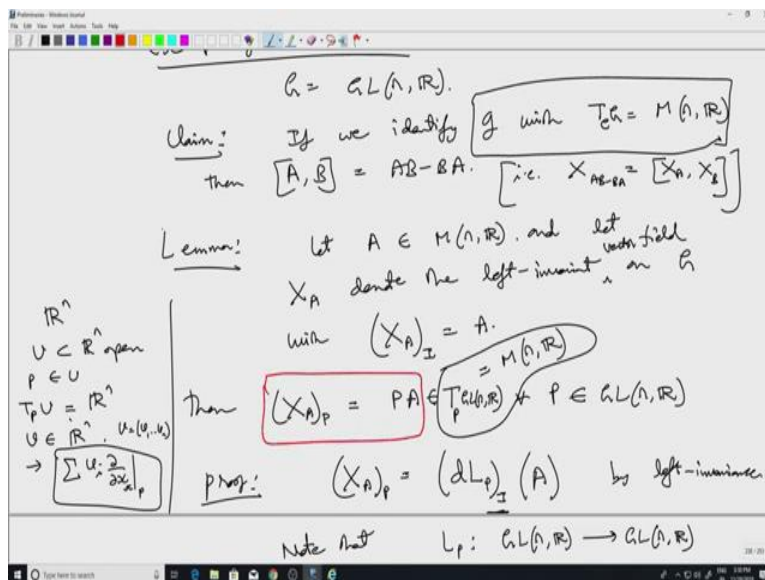 Preliminaries - Windows Journal
File Edit View Insert Actions Tools Help
G = GL(n, ℝ).
Claim: If we identify g with TₑG = M(n, ℝ)
then [A, B] = AB-BA. [i.e. X_{AB-BA} = [X_A, X_B]]
Lemma: Let A ∈ M(n, ℝ). and let
X_A denote the left-invariant vector field on G
with (X_A)_I = A.
= M(n, ℝ)
then (X_A)_P = PA ∈ T_P GL(n,ℝ) ∀ P ∈ GL(n, ℝ)
proof: (X_A)_P = (dL_P)_I (A) by left-invariance
Note that L_P: GL(n, ℝ) → GL(n, ℝ)
ℝⁿ
U ⊂ ℝⁿ open
p ∈ U
T_pU = ℝⁿ
v ∈ ℝⁿ. v=(v₁...vₙ)
→ ∑ vᵢ ∂/∂xᵢ |_p
Type here to search